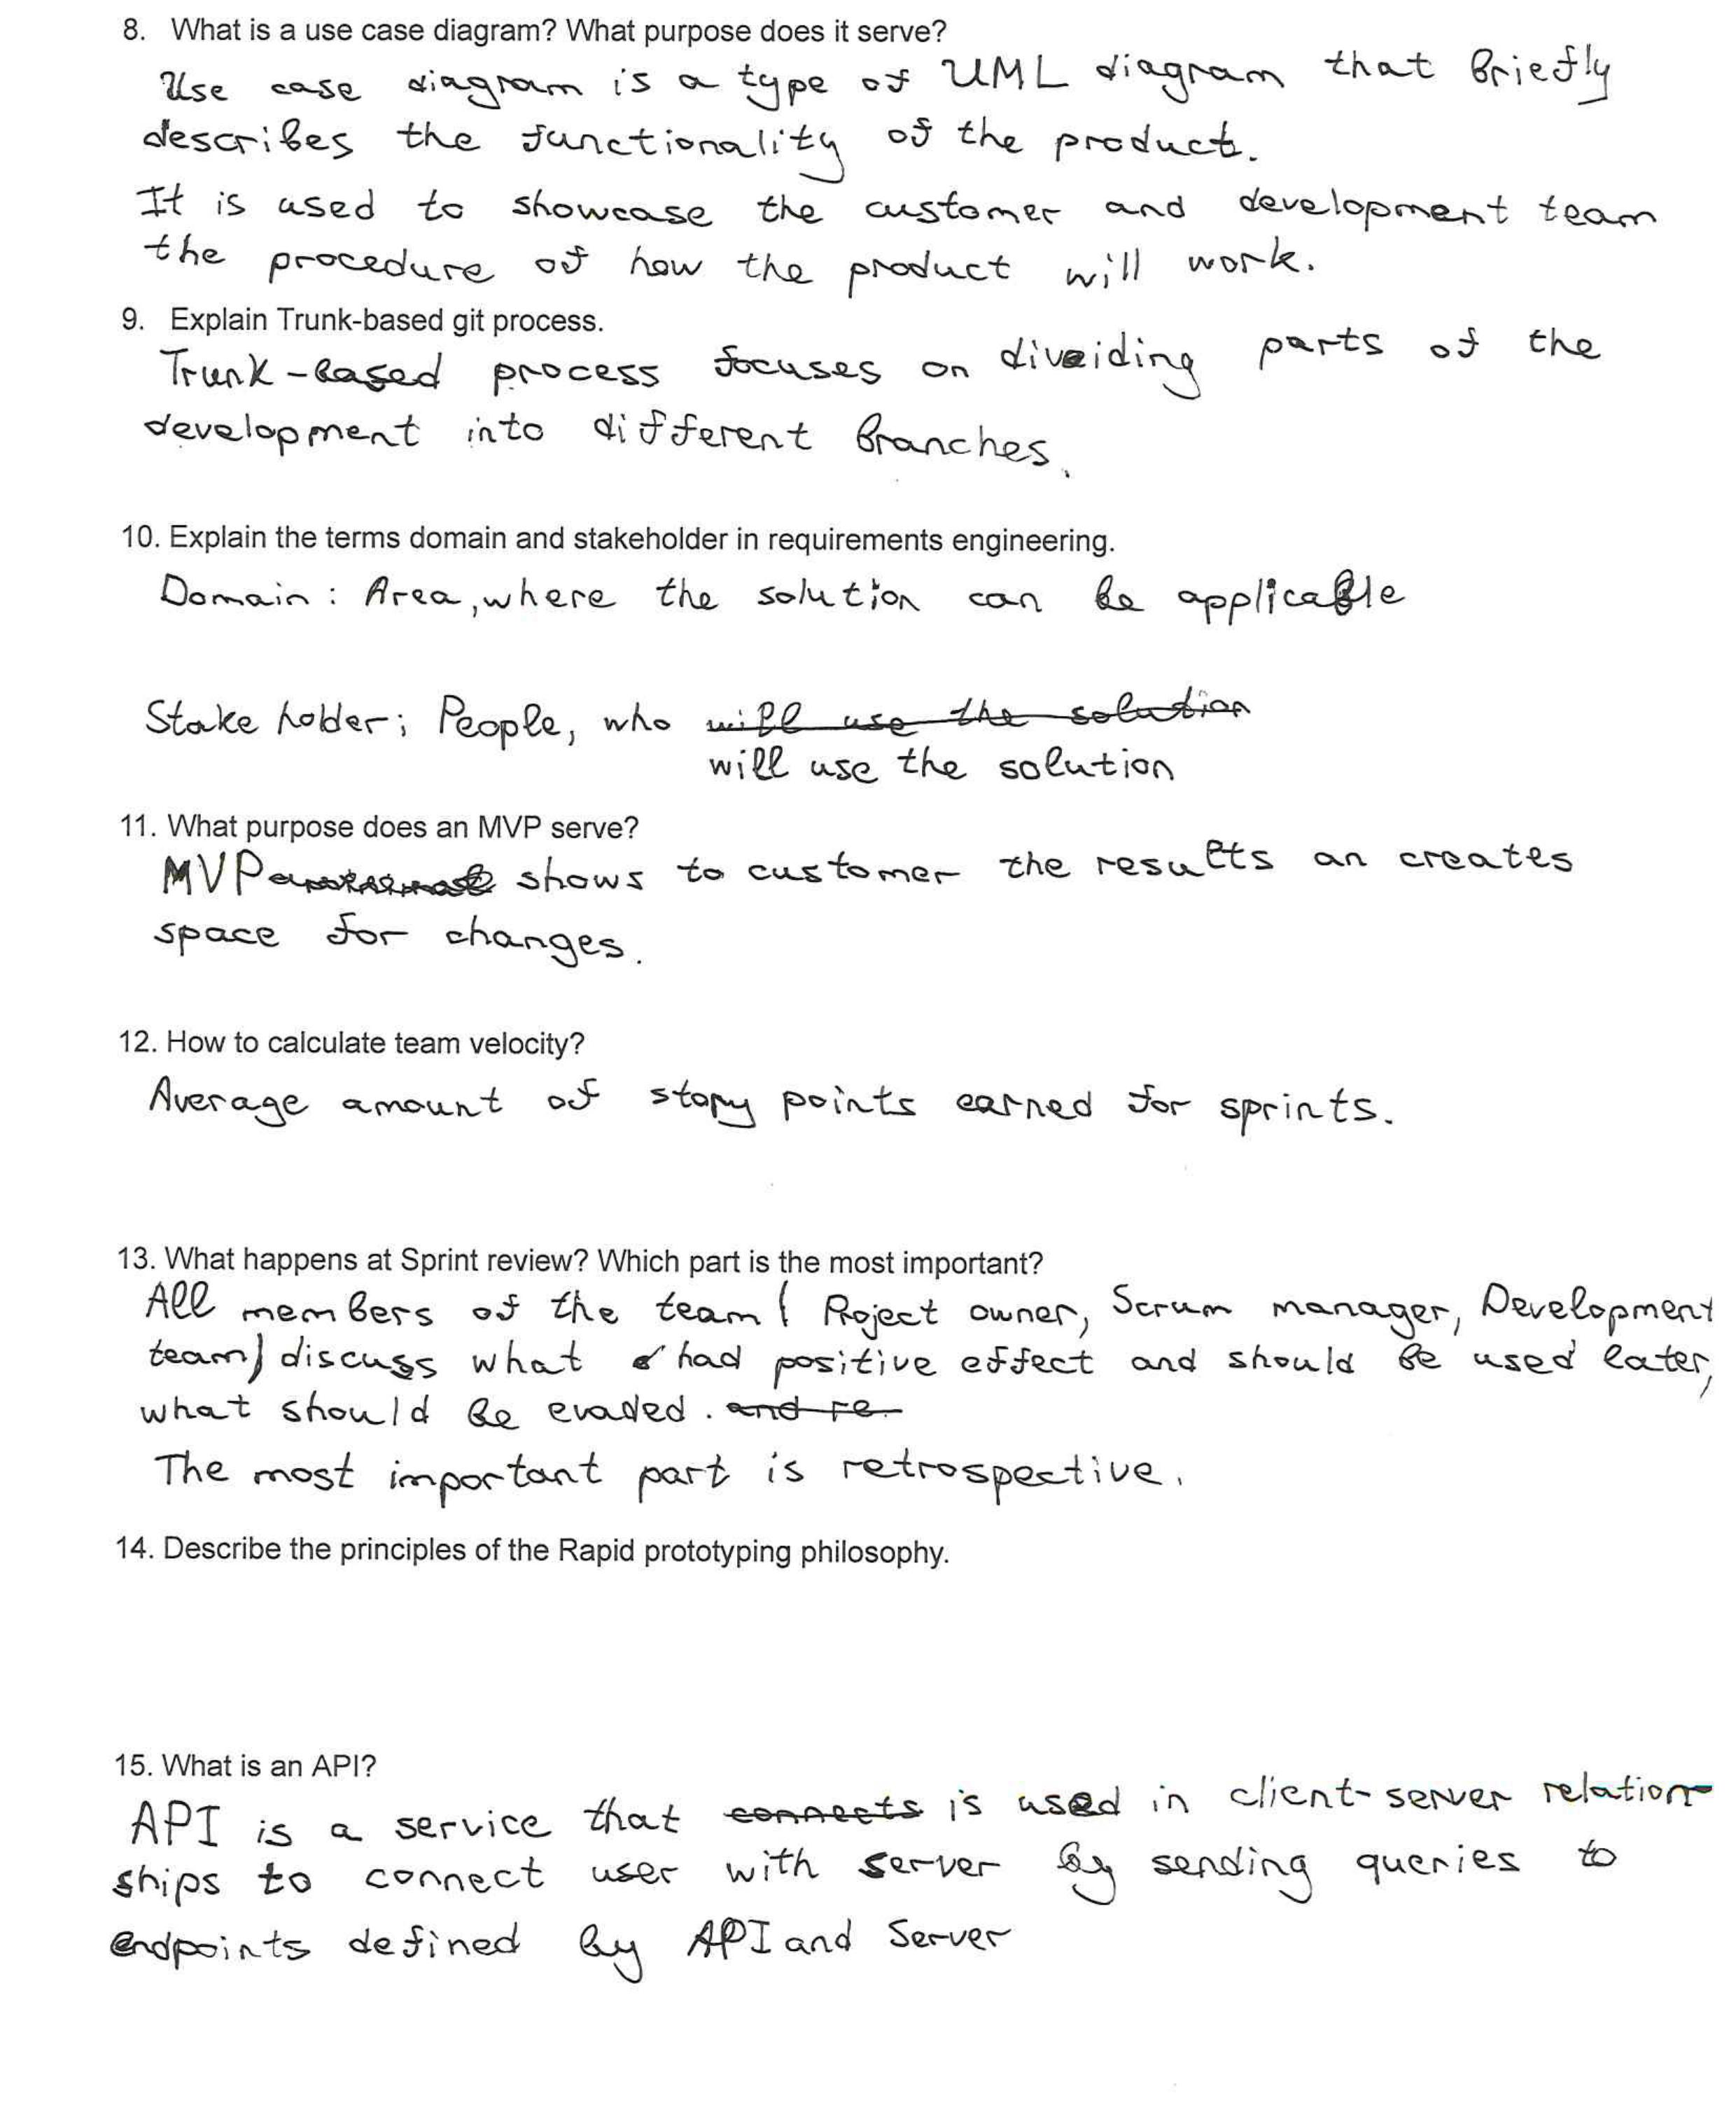 8. What is a use case diagram? What purpose does it serve?
Use case diagram is a type of UML diagram that briefly
describes the functionality of the product.
It is used to showcase the customer and development team
the procedure of how the product will work.
9. Explain Trunk-based git process.
Trunk-based process focuses on dividing parts of the
development into different branches.
10. Explain the terms domain and stakeholder in requirements engineering.
Domain: Area, where the solution can be applicable
Stake holder; People, who will use the solution
will use the solution
11. What purpose does an MVP serve?
MVP shows to customer the results an creates
space for changes.
12. How to calculate team velocity?
Average amount of story points earned for sprints.
13. What happens at Sprint review? Which part is the most important?
All members of the team ( Project owner, Scrum manager, Development
team) discuss what had positive effect and should be used later,
what should be evaded. and re
The most important part is retrospective.
14. Describe the principles of the Rapid prototyping philosophy.
15. What is an API?
API is a service that connects is used in client-server relation-
ships to connect user with server by sending queries to
endpoints defined by API and Server